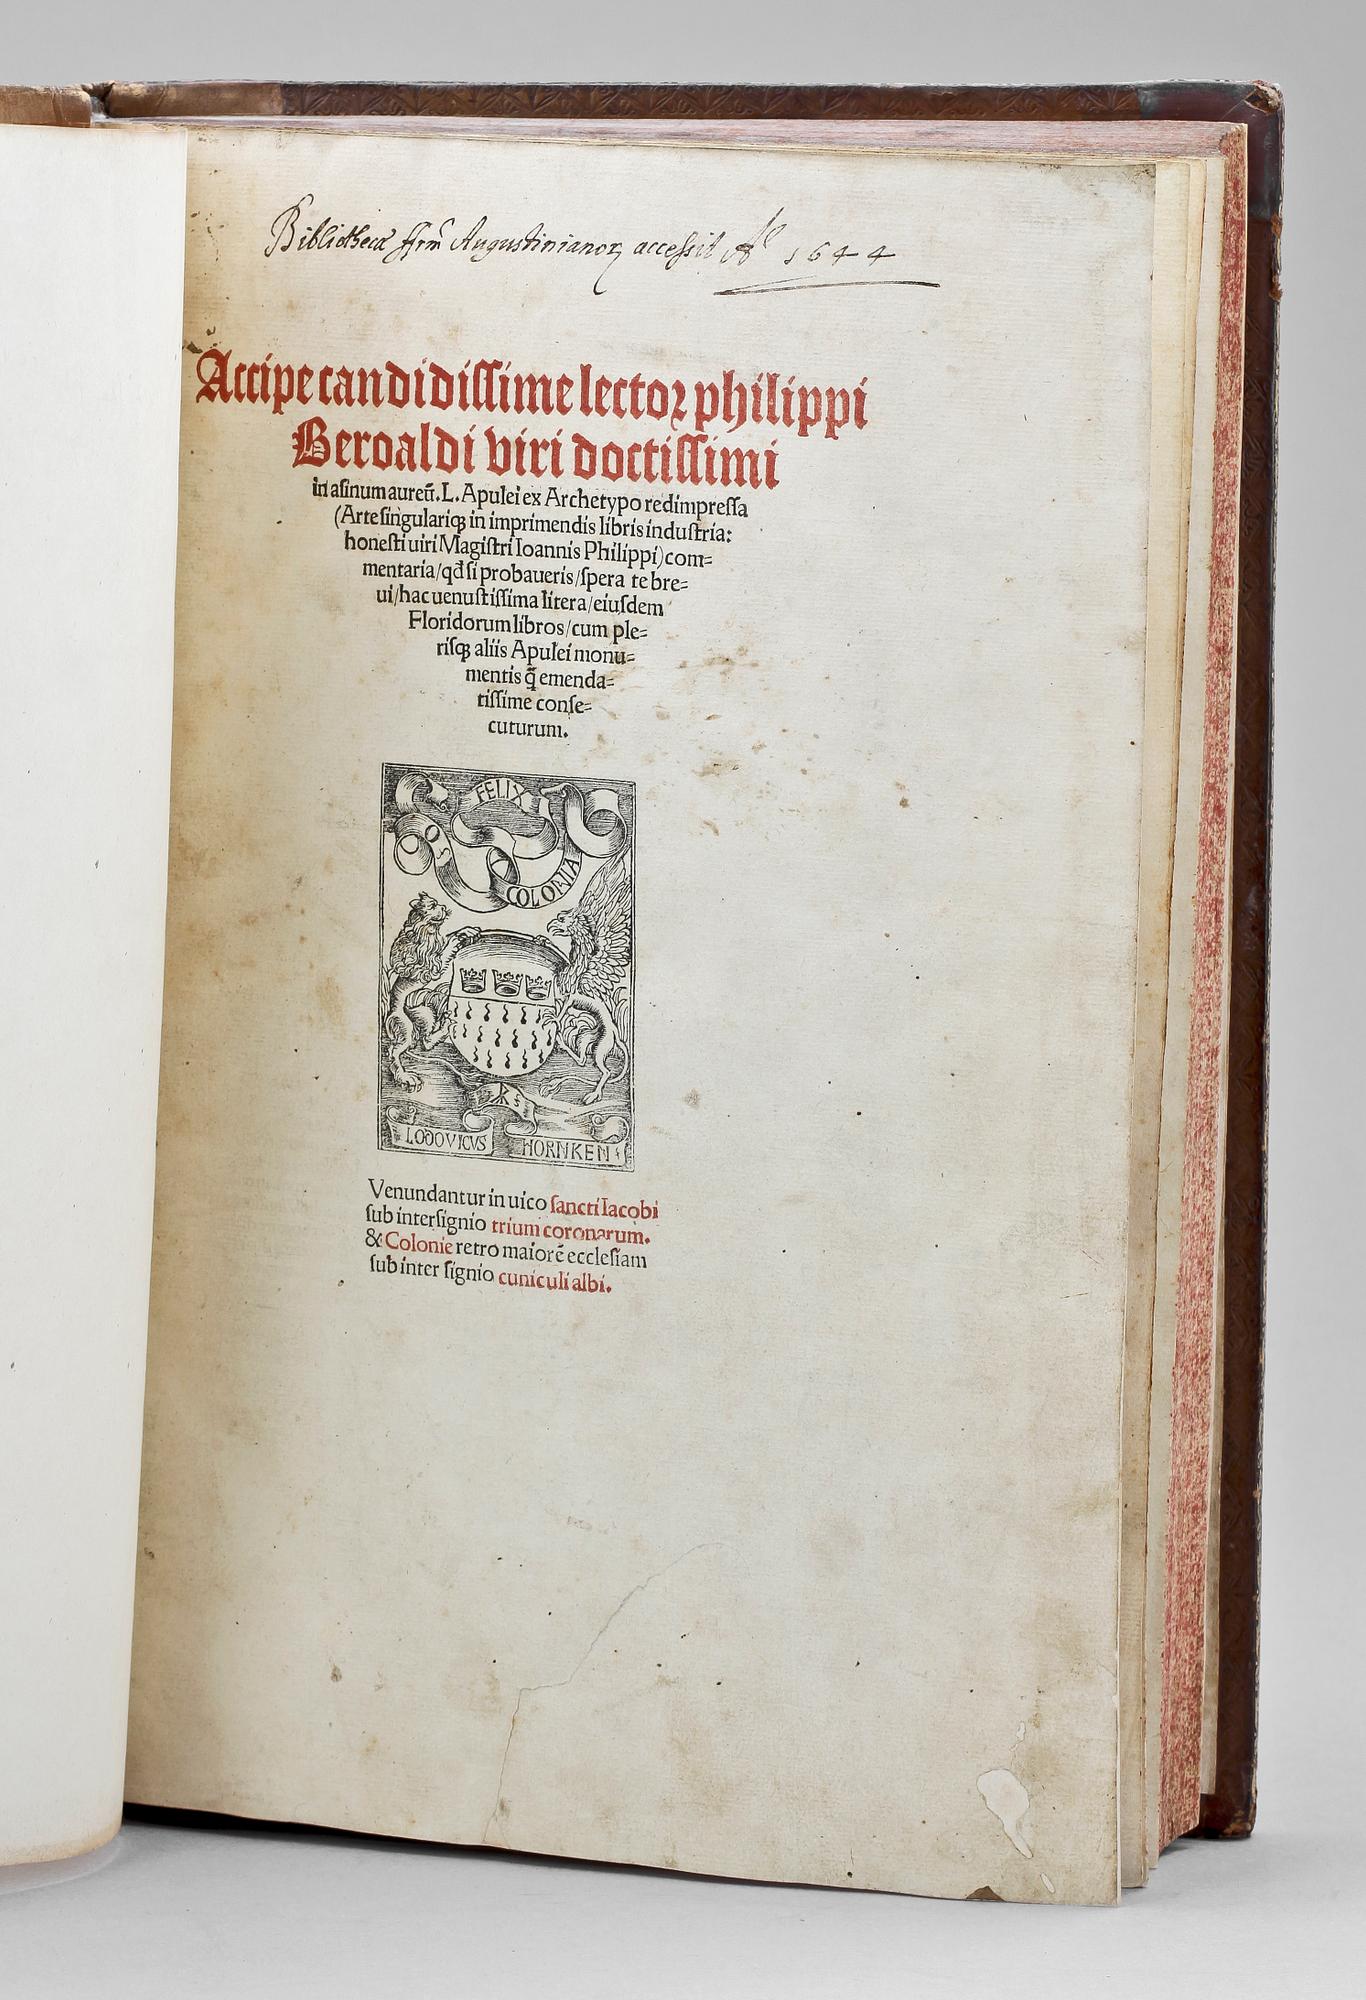 Bibliothecæ ffrm̃ Augustinianoꝝ accessit Aº 1644
Accipe candidiſſime lectoꝛ philippi
Beroaldi viri doctiſſimi
in aſinum aureũ. L. Apulei ex Archetypo redimpreſſa
(Arte ſingulariqꝫ in imprimendis libris induſtria:
honeſti uiri Magiſtri Ioannis Philippi) com=
mentaria/qđ ſi probaueris/ſpera te bre=
ui/hac uenuſtiſſima litera/eiuſdem
Floridorum libros/cum ple=
riſqꝫ aliis Apulei monu=
mentis q̃ emenda=
tiſſime conſe=
cuturum.
O FELIX
COLONIA
LODOVICVS HORNKEN
Venundantur in uico ſancti Iacobi
ſub interſignio trium coronarum.
& Colonie retro maiorẽ eccleſiam
ſub inter ſignio cuniculi albi.